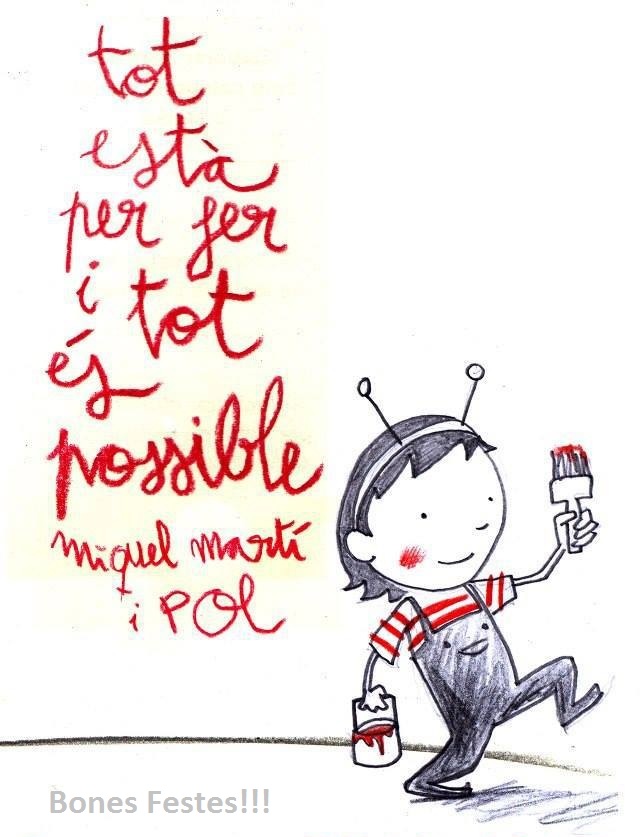 tot
està
per fer
i tot
és
possible
miquel martí
i POL
Bones Festes!!!